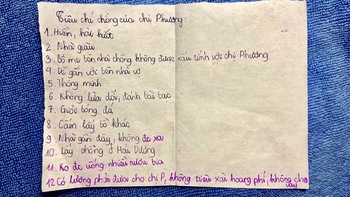 Tiêu chí chồng của chị Phương:
1. Hiền, hài hước
2. Nhà giàu
3. Bố mẹ bên nhà chồng không được xấu tính với chị Phương
4. Dễ gần với bên nhà vợ
5. Thông minh
6. Không lừa dối, đánh bài bạc
7. Cuồng bóng đá
8. Cấm lấy tô khác
9. Nhà gần đây, không đc xa
10. Lấy chồng ở Hải Dương
11. Ko đc uống nhiều rượu bia
12. Có lương phải đưa cho chị P, không tiêu xài hoang phí, không cho vay